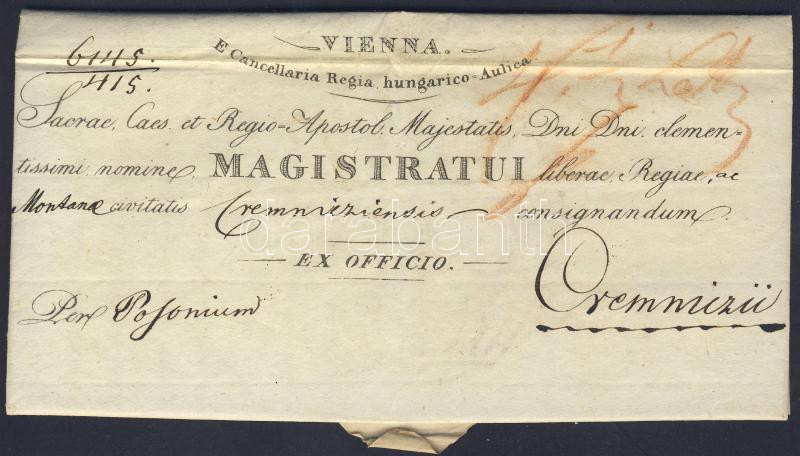 VIENNA.
6145.
415.
E Cancellaria Regia hungarico=Aulica.
Sacrae, Caes. et Regio=Apostol. Majestatis, Dni Dni clemen=
tissimi nomine, MAGISTRATUI liberae, Regiae, ac
Montanæ civitatis Cremniziensis consignandum.
EX OFFICIO.
Per Posonium
Cremnizii
darabanth